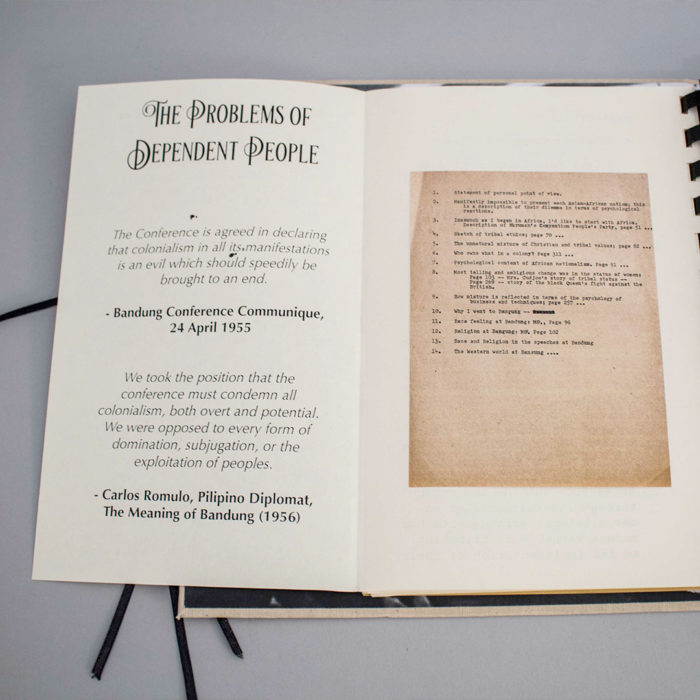 THE PROBLEMS OF
DEPENDENT PEOPLE
The Conference is agreed in declaring
that colonialism in all its manifestations
is an evil which should speedily be
brought to an end.
- Bandung Conference Communique,
24 April 1955
We took the position that the
conference must condemn all
colonialism, both overt and potential.
We were opposed to every form of
domination, subjugation, or the
exploitation of peoples.
- Carlos Romulo, Pilipino Diplomat,
The Meaning of Bandung (1956)
1. Statement of personal point of view.
2. Manifestly impossible to present each Asian-African nation; this
is a description of their dilemma in terms of psychological
reactions.
3. Inasmuch as I began in Africa, I'd like to start with Africa.
Description of Nkrumah's Convention People's Party, page 51 ...
4. Sketch of tribal ethics; page 70 ...
5. The unnatural mixture of Christian and tribal values; page 82 ...
6. Who owns what in a colony? Page 313 ...
7. Psychological content of African nationalism. Page 91 ...
8. Most telling and ambigious change was in the status of women:
Page 103 -- Mrs. story of tribal status --
Page 289 -- story of the black Queen's fight against the
British.
9. How mixture is reflected in terms of the psychology of
business and techniques; page 257 ...
10. Why I went to Bandung --
11. Race feeling at Bandung: MS., Page 96
12. Religion at Bandung: MS. Page 102
13. Race and Religion in the speeches at Bandung
14. The Western world at Bandung ....